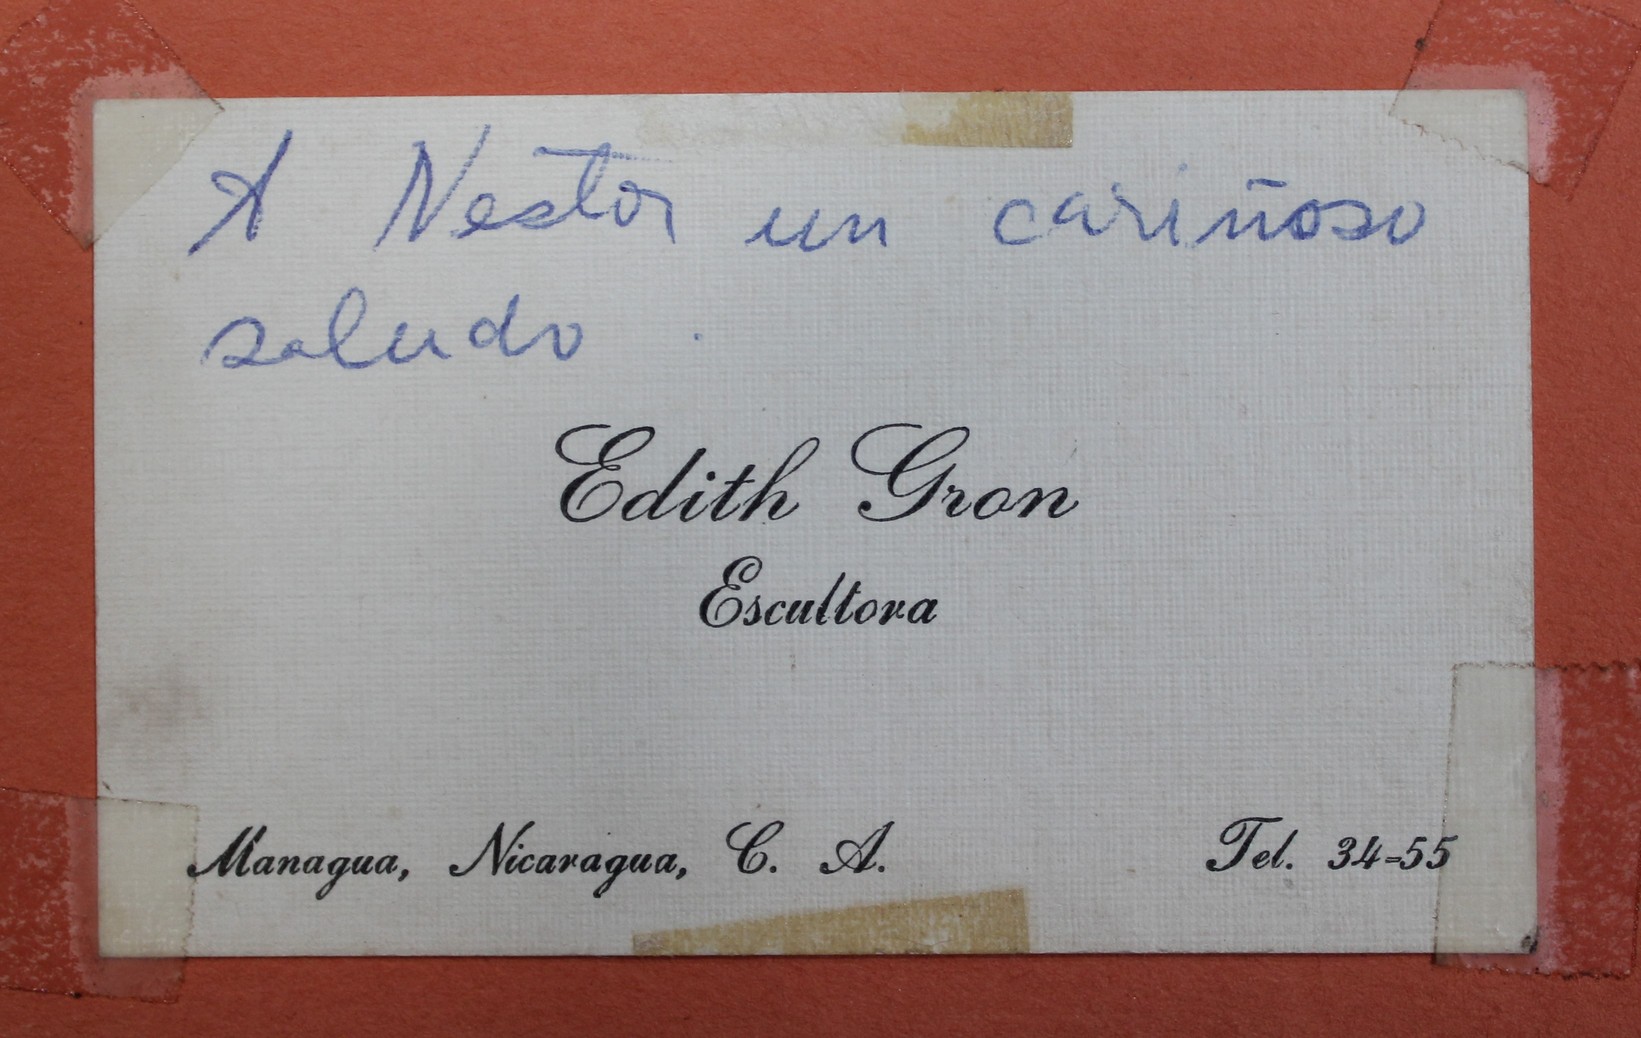 A Nestor un cariñoso
saludo.
Edith Gron
Escultora
Managua, Nicaragua, C. A. Tel. 34-55